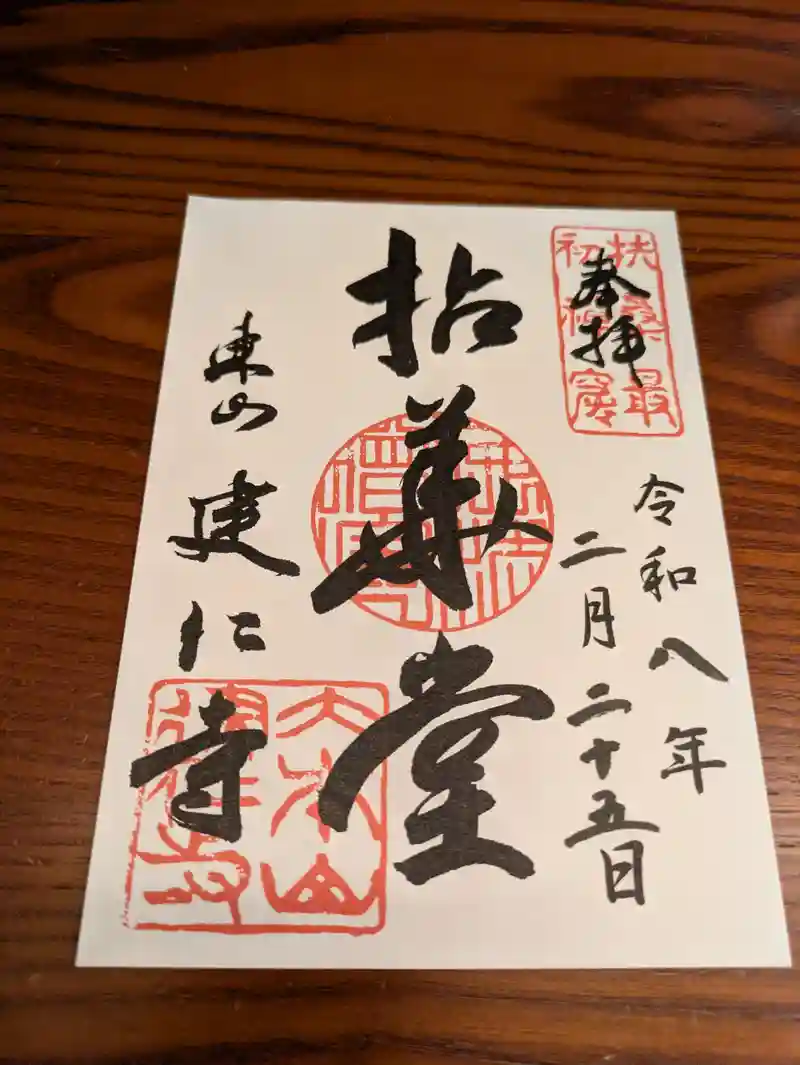 奉拝
扶桑最
初禅窟
令和八年
二月二十五日
拈華堂
東山
建仁寺
大本山
建仁寺